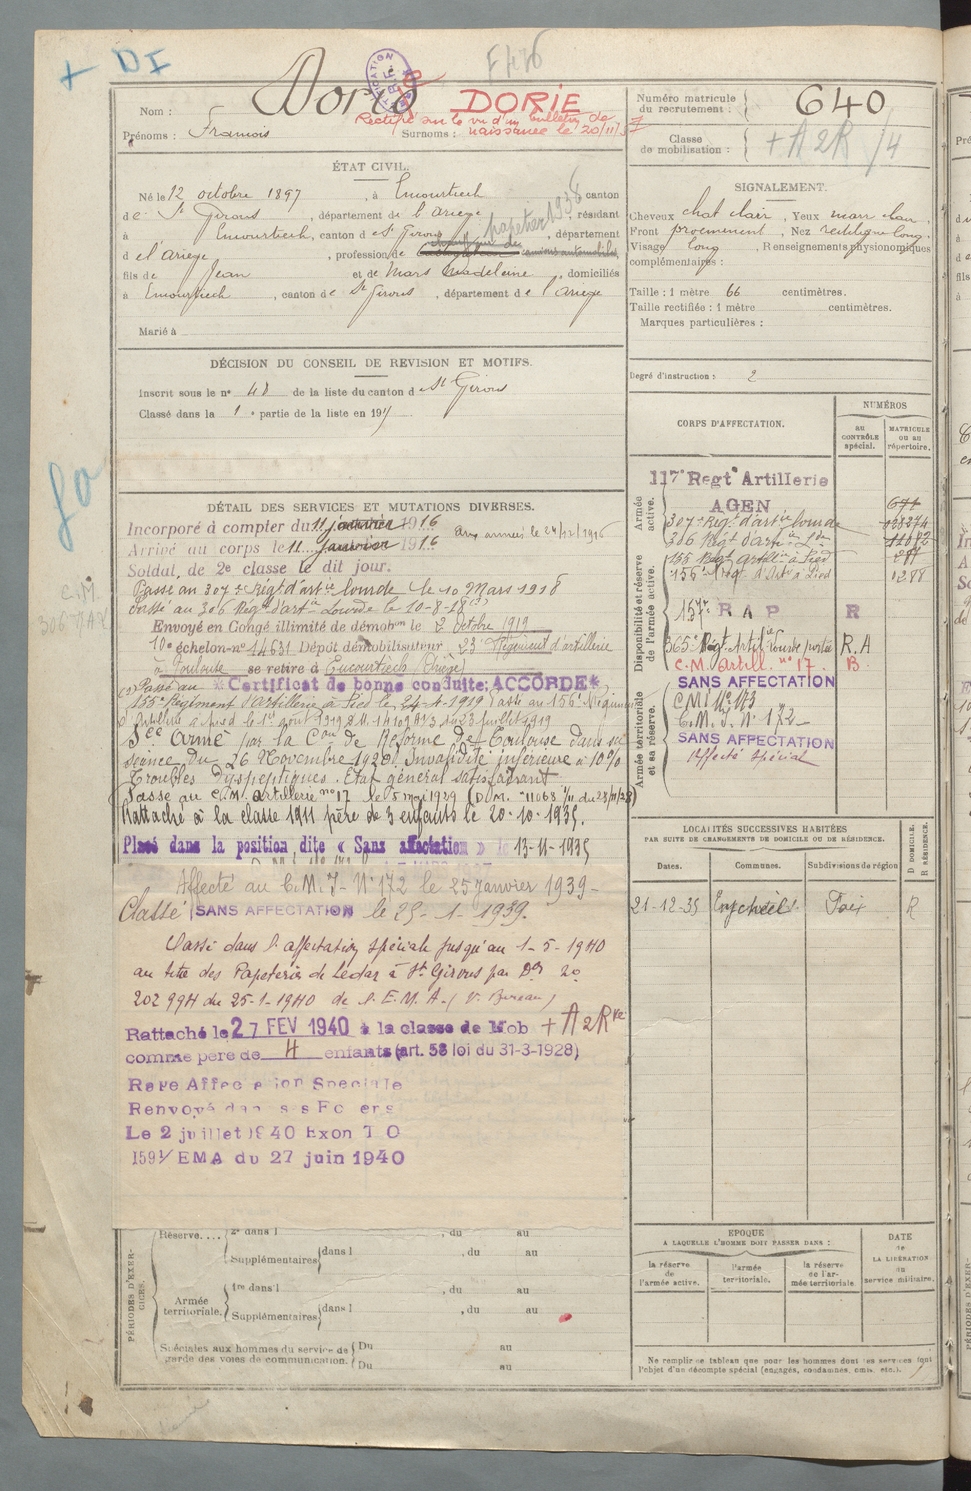 + DI
F476
Nom :
DORIE
Rectifié sur le vu d'un bulletin de
naissance le 20/11/
Prénoms : François
Surnoms :
Numéro matricule
du recrutement :
640
Classe
de mobilisation :
+A2R/4
ÉTAT CIVIL.
Né le 12 octobre 1897, à Encourtiech canton
de St Girons, département de l'Ariège résidant
à Encourtiech, canton de St Girons, département
papetier 1938
d el'ariège, profession de camions automobiles,
fils de Jean et de Mars Madeleine, domiciliés
à Encourtiech, canton de St Girons, département de l'ariège
Marié à
SIGNALEMENT.
Cheveux chat clair, Yeux marr clair,
Front proeminent, Nez rectiligne long.
Visage long, Renseignements physionomiques
complémentaires :
Taille : 1 mètre 66 centimètres.
Taille rectifiée : 1 mètre centimètres.
Marques particulières :
Degré d'instruction : 2
DÉCISION DU CONSEIL DE REVISION ET MOTIFS.
Inscrit sous le n° 40 de la liste du canton de St Girons
Classé dans la 1e partie de la liste en 191
DÉTAIL DES SERVICES ET MUTATIONS DIVERSES.
Incorporé à compter du 11 janvier 1916
aux armées le 24/12/1916
Arrivé au corps le 11 janvier 1916
Soldat de 2e classe le dit jour.
Passé au 307e Régt d'artie lourde le 10 Mars 1918
Passé au 306 Régt d'artie Lourde le 10-8-18
Envoyé en Congé illimité de démobon le 2 octobre 1919
10e échelon-n° 14631 Dépôt démobilisateur 23e Régiment d'artillerie
à Toulouse se retire à Encourtiech (Ariège)
Passé au
*Certificat de bonne conduite: ACCORDÉ*
155e Régiment d'Artillerie à Pied le 24-1-1919 Passé au 156e Régiment
d'Artillerie à Pied le 1er août 1919 D.M. 14102 973 du 23 juillet 1919
Scé Armé par la Con de Réforme de Toulouse dans sa
séance du 26 Novembre 1928. Invalidité inférieure à 10%
Troubles dyspeptiques. Etat général satisfaisant
Passé au C.M. Artillerie n° 17 le 5 mai 1929 (D.M. n° 11068 1/11 du 23/11/28)
Rattaché à la classe 1911 père de 3 enfants le 20-10-1935.
Placé dans la position dite « Sans affectation » le 13-11-1935
Affecté au C.M.I- N° 172 le 25 Janvier 1939-
Classé SANS AFFECTATION le 25-1-1939.
Classé dans l'affectation spéciale jusqu'au 1-5-1940
au titre des Papeteries de Lédar à St Girons par Don no
202 99H du 25-1-1940 de l'E.M.A. (1er Bureau)
Rattaché le 27 FEV 1940 à la classe de Mob +A2Rve
comme père de 4 enfants (art. 58 loi du 31-3-1928)
Rayé Affectation Spéciale
Renvoyé dans ses Foyers
Le 2 juillet 1940 Exon T O
1591/EMA du 27 juin 1940
CORPS D'AFFECTATION.
NUMÉROS
au
CONTRÔLE
spécial.
MATRICULE
ou au
répertoire.
Armée
active.
117e Regt Artillerie
AGEN
307e Régt d'artie lourde
306 Régt d'artie Lde
Disponibilité et réserve
de l'armée active.
155 Régt Artille à Pied
156e Régt d'Artie à Pied 1288
157e R A P R
365e Régt Artie Lourde portée R.A
C.M. Artill. n° 17. B.
SANS AFFECTATION
Armée territoriale
et sa réserve.
C.M.I. N° 172
SANS AFFECTATION
Affecté spécial
LOCALITÉS SUCCESSIVES HABITÉES
PAR SUITE DE CHANGEMENTS DE DOMICILE OU DE RÉSIDENCE.
Dates. Communes. Subdivisions de région
D DOMICILE.
R RÉSIDENCE.
21-12-35 Foix R
Réserve.... 2e dans l , du au
Supplémentaires dans l , du au
PÉRIODES D'EXERCICES.
Armée
territoriale.
1re dans l , du au
Supplémentaires dans l , du au
Spéciales aux hommes du service de
garde des voies de communication.
Du au
Du au
EPOQUE
A LAQUELLE L'HOMME DOIT PASSER DANS :
la réserve
de
l'armée active.
l'armée
territoriale.
la réserve
de l'ar-
mée territoriale
DATE
de
LA LIBÉRATION
du
service militaire.
Ne remplir ce tableau que pour les hommes dont les services font
l'objet d'un décompte spécial (engagés, condamnés, omis, etc.).